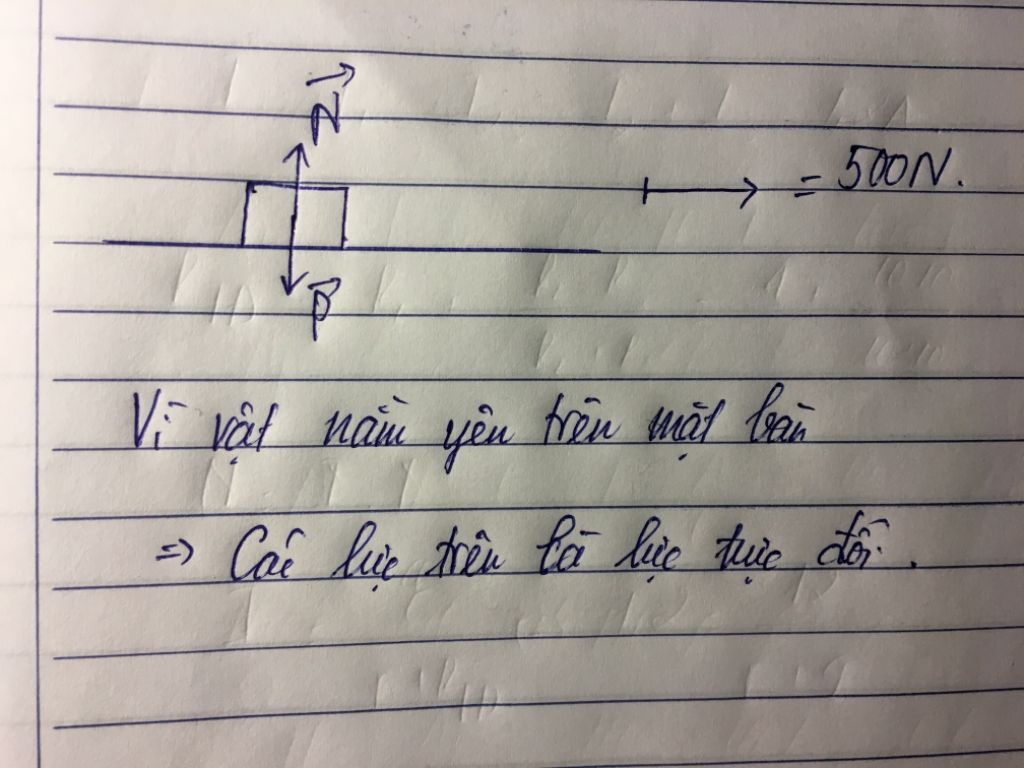 N
= 500N.
P
Vì vật nằm yên trên mặt bàn
=> Các lực trên là lực trực đối.